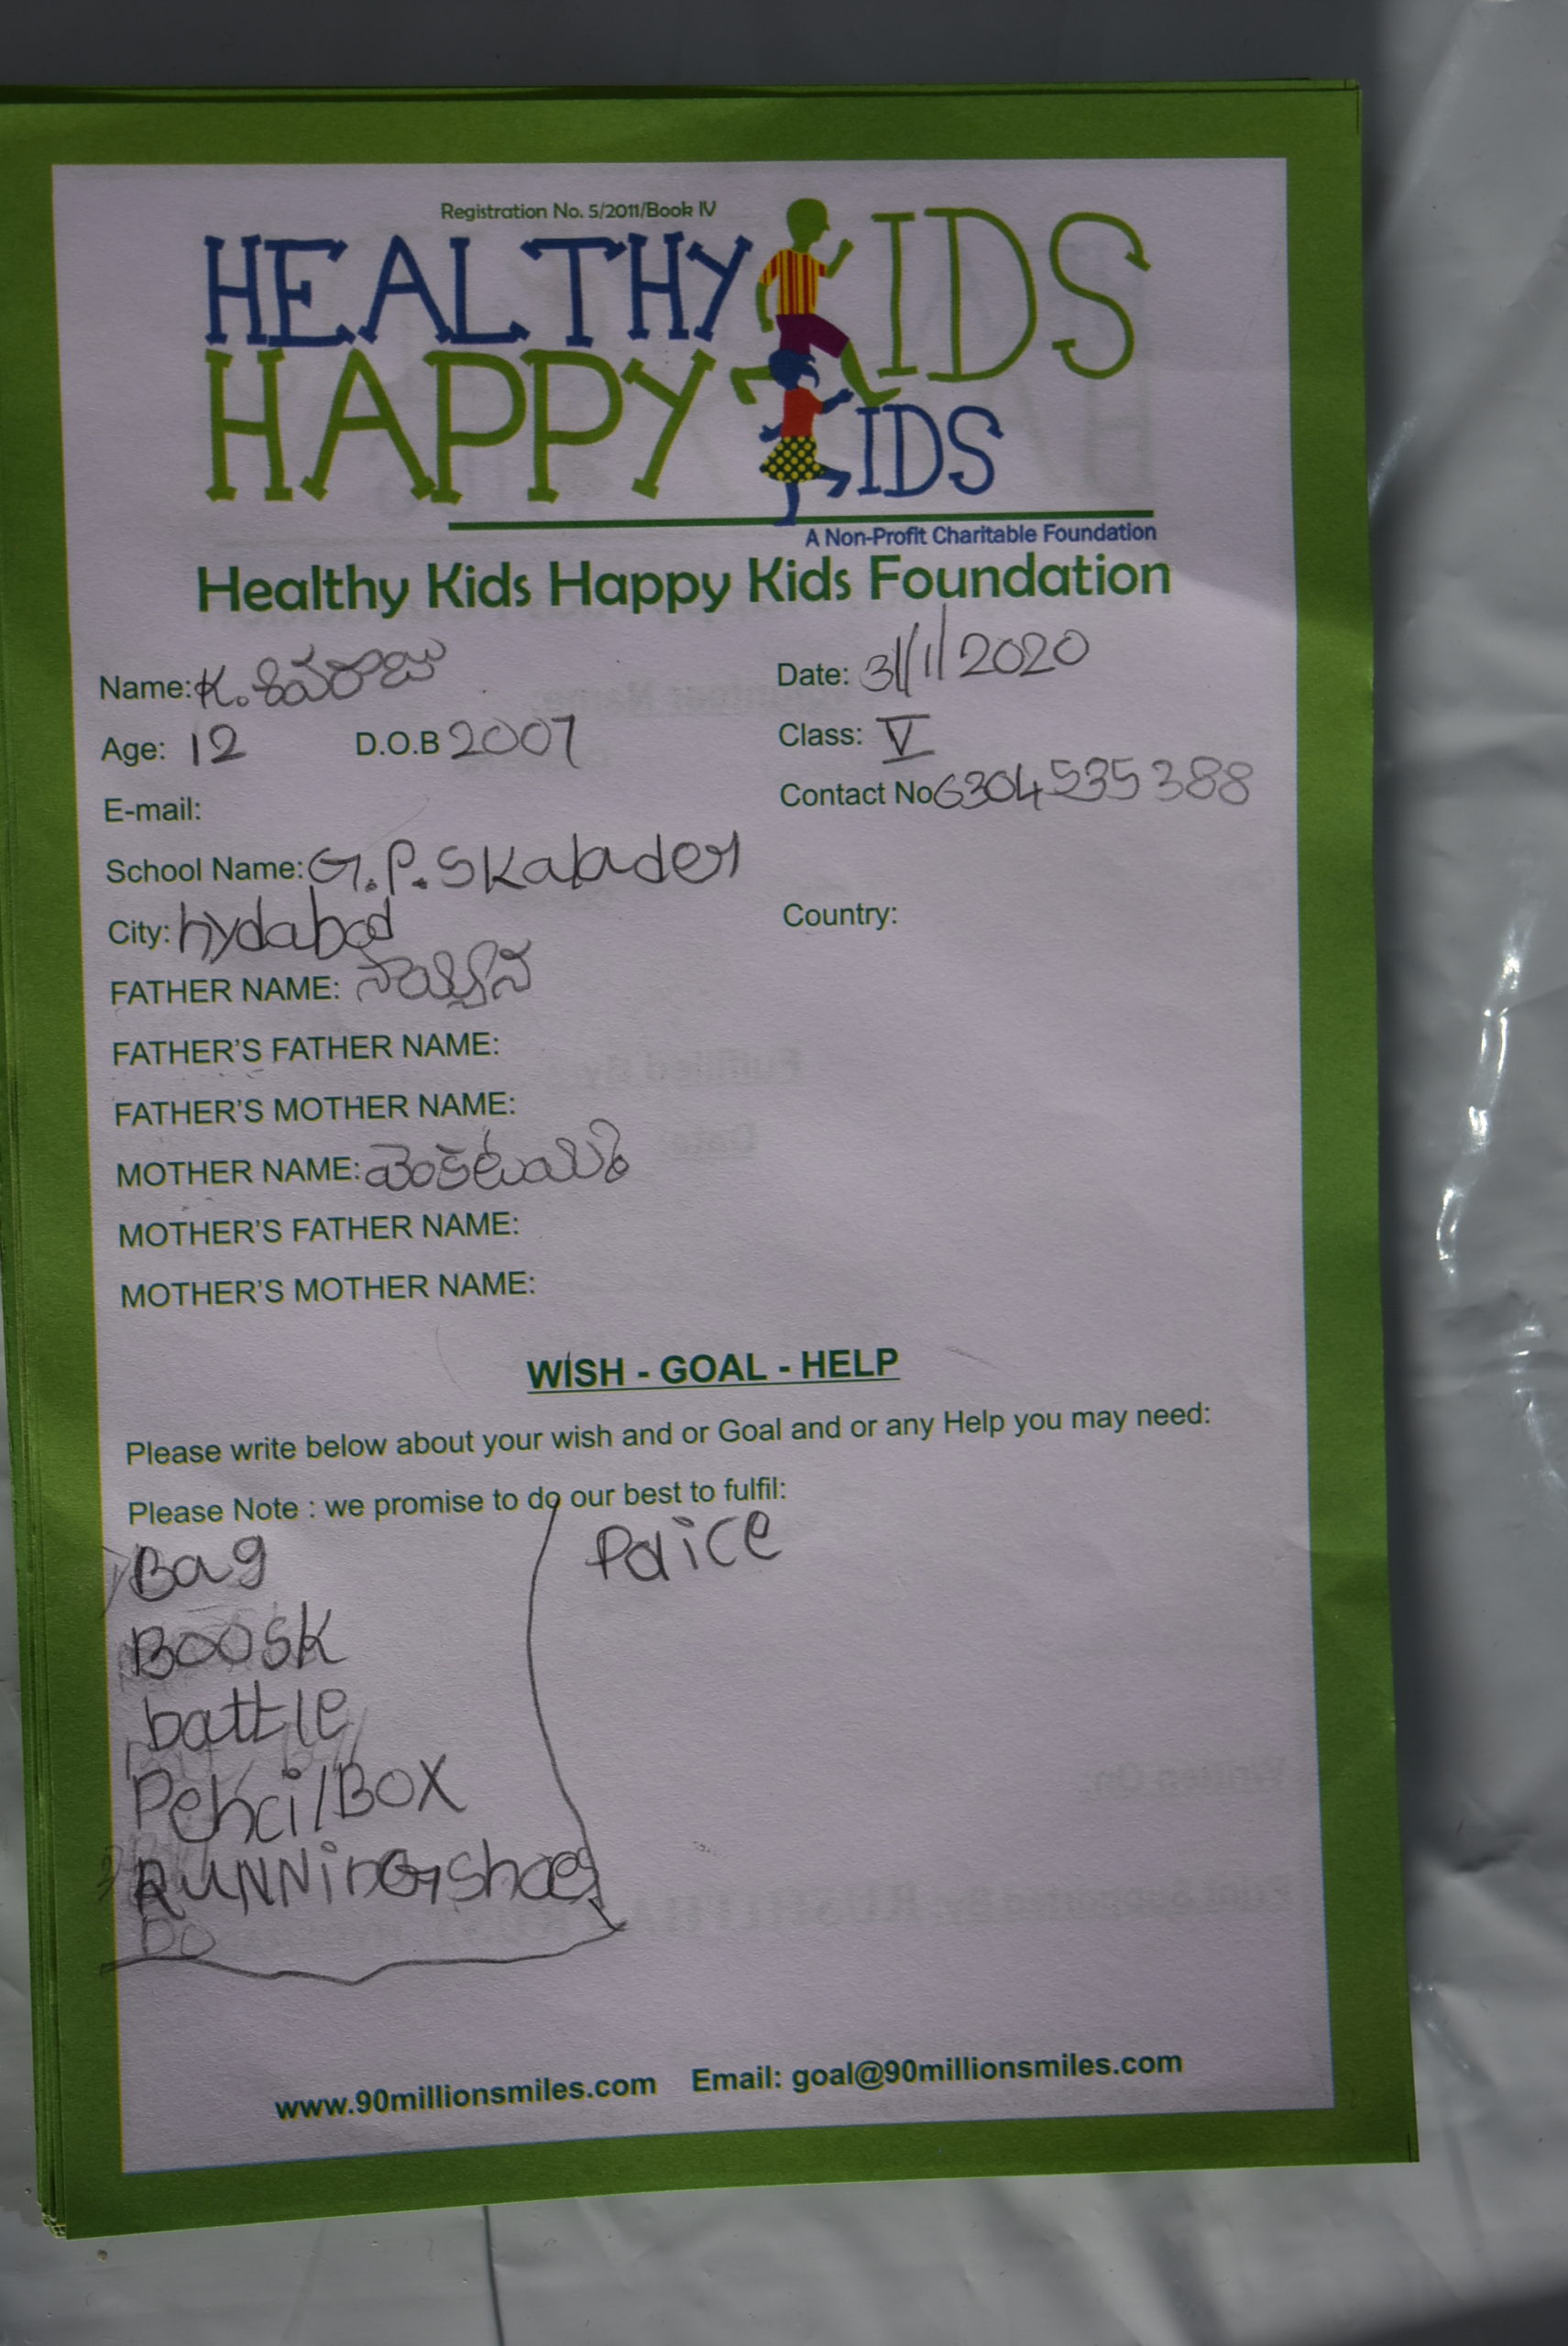 Registration No. 5/2011/Book IV
HEALTHY KIDS
HAPPY KIDS
A Non-Profit Charitable Foundation
Healthy Kids Happy Kids Foundation
Name: K. శివరాజు
Date: 31/1/2020
Age: 12 D.O.B 2007
Class: V
E-mail:
Contact No 6304535388
School Name: G.P.S Kalader
City: hydabad
Country:
FATHER NAME:
FATHER'S FATHER NAME:
FATHER'S MOTHER NAME:
MOTHER NAME:
MOTHER'S FATHER NAME:
MOTHER'S MOTHER NAME:
WISH - GOAL - HELP
Please write below about your wish and or Goal and or any Help you may need:
Please Note : we promise to do our best to fulfil:
Bag
Police
Boosk
battle
Pencil BOX
RUNNinG shoes
www.90millionsmiles.com Email: goal@90millionsmiles.com